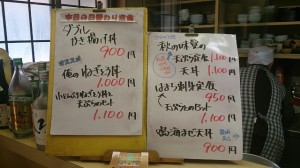 本日の日替わり定食
ダブル
かき揚げ丼
900円
俺のねぎとろ丼
1.000円
小ねぎとろ丼と
天ぷらのセット
1.100円
秋の味覚の
天ぷら定食 1.100円
天丼 1.100円
はまち刺身定食
950円
天ぷらとのセット
1.100円
海老天丼
900円